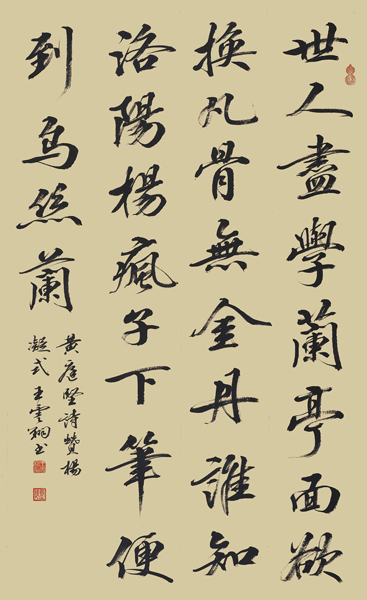 世人盡學蘭亭面欲
換凡骨無金丹誰知
洛陽楊瘋子下筆便
到烏絲蘭
黃庭堅詩贊楊
凝式 王雲書